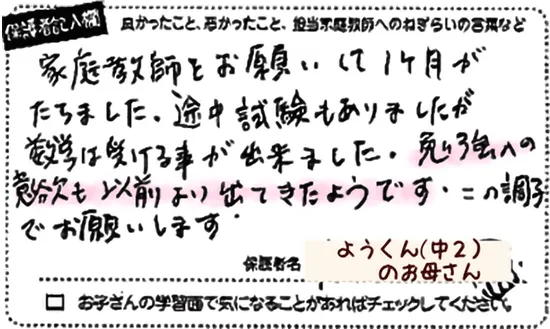 保護者記入欄 良かったこと、悪かったこと、担当家庭教師へのねぎらいの言葉など
家庭教師をお願いして1ケ月が
たちました。途中試験もありましたが
数学は受ける事が出来ました。勉強への
意欲も以前より出てきたようです。この調子
でお願いします。
保護者名 ようくん(中2)
のお母さん
□ お子さんの学習面で気になることがあればチェックしてください。